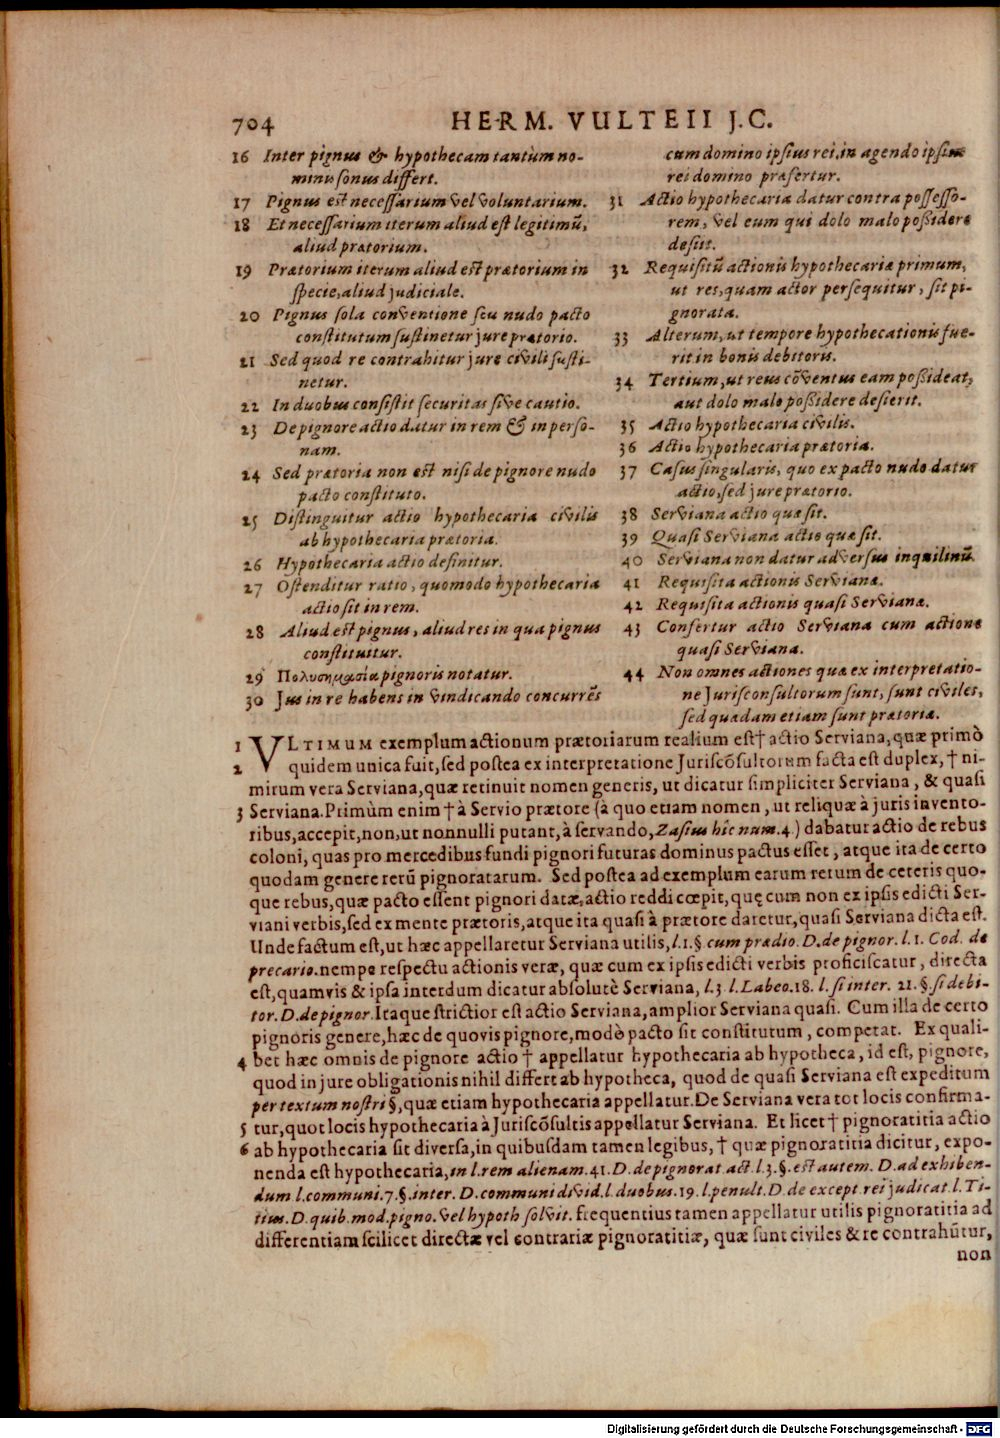 704 HERM. VULTEII J.C.
16 Inter pignus & hypothecam tantùm no-
minis sonus differt.
17 Pignus est necessarium vel voluntarium.
18 Et necessarium iterum aliud est legitimū,
aliud prætorium.
19 Prætorium iterum aliud est prætorium in
specie, aliud judiciale.
20 Pignus sola conventione seu nudo pacto
constitutum sustinetur jure prætorio.
21 Sed quod re contrahitur jure civili susti-
netur.
22 In duobus consistit securitas sive cautio.
23 De pignore actio datur in rem & in perso-
nam.
24 Sed prætoria non est nisi de pignore nudo
pacto constituto.
25 Distinguitur actio hypothecaria civilis
ab hypothecaria prætoria.
26 Hypothecaria actio definitur.
27 Ostenditur ratio, quomodo hypothecaria
actio sit in rem.
28 Aliud est pignus, aliud res in qua pignus
constituitur.
29 Πολυσημασία pignoris notatur.
30 Jus in re habens in vindicando concurrēs
cum domino ipsius rei, in agendo ipsius
rei domino præfertur.
31 Actio hypothecaria datur contra possesso-
rem, vel eum qui dolo malo possidere
desiit.
32 Requisitū actionis hypothecariæ primum,
ut res, quam actor persequitur, sit pi-
gnorata.
33 Alterum, ut tempore hypothecationis fue-
rit in bonis debitoris.
34 Tertium, ut reus cōventus eam possideat,
aut dolo malo possidere desierit.
35 Actio hypothecaria civilis.
36 Actio hypothecaria prætoria.
37 Casus singularis, quo ex pacto nudo datur
actio, sed jure prætorio.
38 Serviana actio quæ sit.
39 Quasi Serviana actio quæ sit.
40 Serviana non datur adversus inquilinū.
41 Requisita actionis Servianæ.
42 Requisita actionis quasi Servianæ.
43 Confertur actio Serviana cum actione
quasi Serviana.
44 Non omnes actiones quæ ex interpretatio-
ne Jurisconsultorum sunt, sunt civiles,
sed quædam etiam sunt prætoriæ.
1 VLTIMUM exemplum actionum prætoriarum realium est † actio Serviana, quæ primò
2 quidem unica fuit, sed postea ex interpretatione Juriscōsultorum facta est duplex, † ni-
mirum vera Serviana, quæ retinuit nomen generis, ut dicatur simpliciter Serviana, & quasi
3 Serviana. Primùm enim † à Servio prætore (à quo etiam nomen, ut reliquæ à juris invento-
ribus, accepit, non, ut nonnulli putant, à servando, Zasius hîc num. 4.) dabatur actio de rebus
coloni, quas pro mercedibus fundi pignori futuras dominus pactus esset, atque ita de certo
quodam genere rerū pignoratarum. Sed postea ad exemplum earum rerum de ceteris quo-
que rebus, quæ pacto essent pignori datæ, actio reddi cœpit, quę cum non ex ipsis edicti Ser-
viani verbis, sed ex mente prætoris, atque ita quasi à prætore daretur, quasi Serviana dicta est.
Unde factum est, ut hæc appellaretur Serviana utilis, l. 1. §. cum prædio. D. de pignor. l. 1. Cod. de
precario. nempe respectu actionis veræ, quæ cum ex ipsis edicti verbis proficiscatur, directa
est, quamvis & ipsa interdum dicatur absolutè Serviana, l. 3. l. Labeo. 18. l. si inter. 21. §. si debi-
tor. D. de pignor. Itaque strictior est actio Serviana, amplior Serviana quasi. Cum illa de certo
pignoris genere, hæc de quovis pignore, modò pacto sit constitutum, competat. Ex quali-
4 bet hæc omnis de pignore actio † appellatur hypothecaria ab hypotheca, id est, pignore,
quod in jure obligationis nihil differt ab hypotheca, quod de quasi Serviana est expeditum
per textum nostri §, quæ etiam hypothecaria appellatur. De Serviana vera tot locis confirma-
5 tur, quot locis hypothecaria à Juriscōsultis appellatur Serviana. Et licet † pignoratitia actio
6 ab hypothecaria sit diversa, in quibusdam tamen legibus, † quæ pignoratitia dicitur, expo-
nenda est hypothecaria, in l. rem alienam. 41. D. de pignorat. act. l. 3. §. est autem. D. ad exhiben-
dum l. communi. 7. §. inter. D. communi divid. l. duobus. 19. l. penult. D. de except. rei judicat. l. Ti-
tius. D. quib. mod. pigno. vel hypoth solvit. frequentius tamen appellatur utilis pignoratitia ad
differentiam scilicet directæ vel contrariæ pignoratitiæ, quæ sunt civiles & re contrahūtur,
non
Digitalisierung gefördert durch die Deutsche Forschungsgemeinschaft - DFG